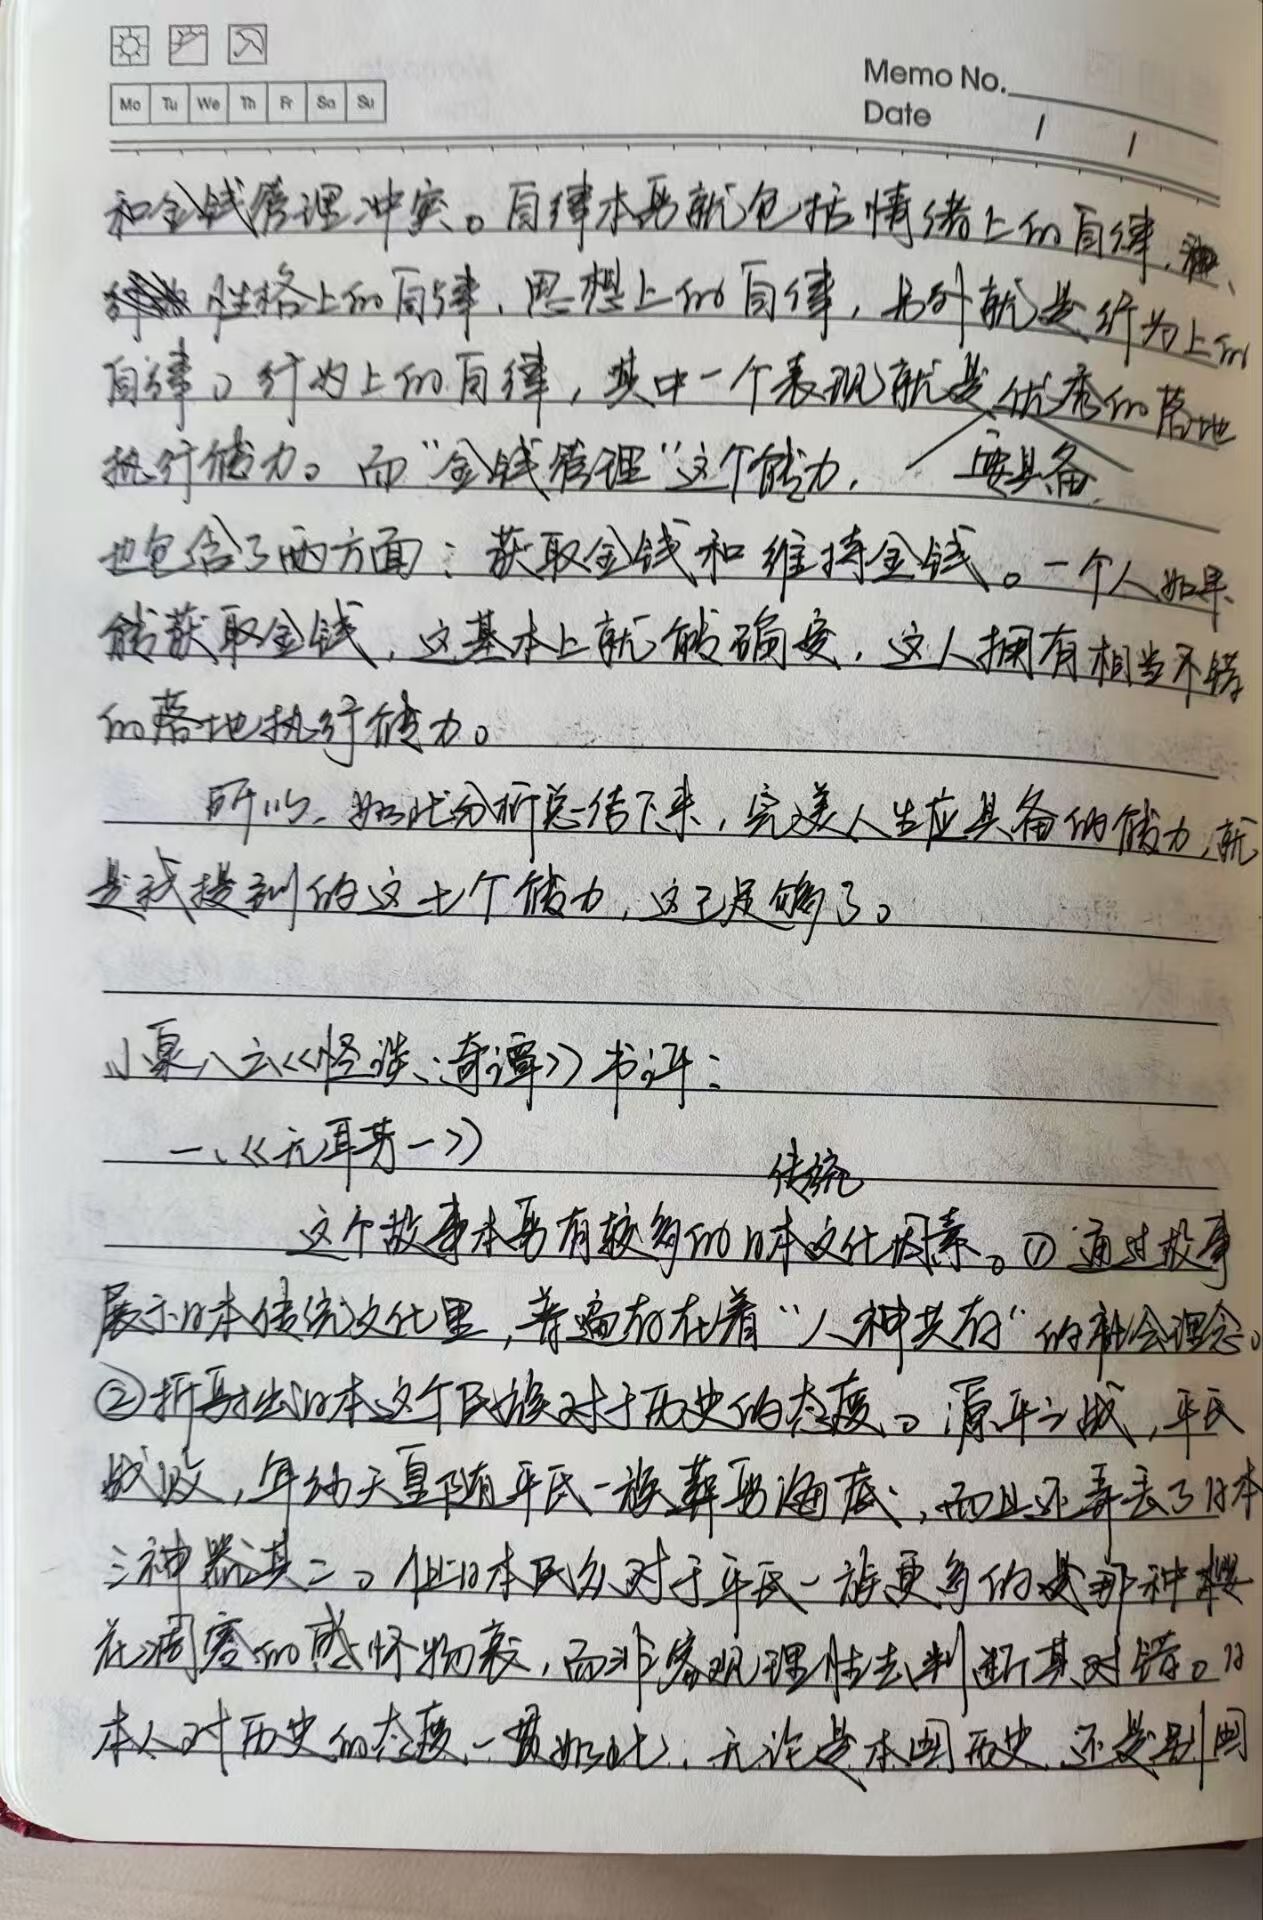 Mo Tu We Th Fr Sa Su
Memo No.
Date / /
和金钱管理冲突。自律本身就包括情绪上的自律、
性格上的自律、思想上的自律，另外就是行为上的
自律。行为上的自律，其中一个表现就是优秀的落地
执行能力。而“金钱管理”这个能力，要具备
也包含了两方面：获取金钱和维持金钱。一个人如果
能获取金钱，这基本上就能确定，这人拥有相当不错
的落地执行能力。
所以，如此分析总结下来，完美人生应具备的能力，就
是我提到的这七个能力，这已足够了。
小泉八云《怪谈·奇谭》书评：
一、《无耳芳一》
传统
这个故事本身有较多的日本文化因素。①通过故事
展示日本传统文化里，普遍存在着“人神共存”的社会理念。
②折射出日本这个民族对于历史的态度。源平之战，平氏
战败，年幼天皇随平氏一族葬身海底，而且还弄丢了日本
三神器其二。但日本民众对于平氏一族更多的是那种樱
花凋零的感怀物哀，而非客观理性去判断其对错。日
本人对历史的态度一贯如此，无论是本国历史，还是别国